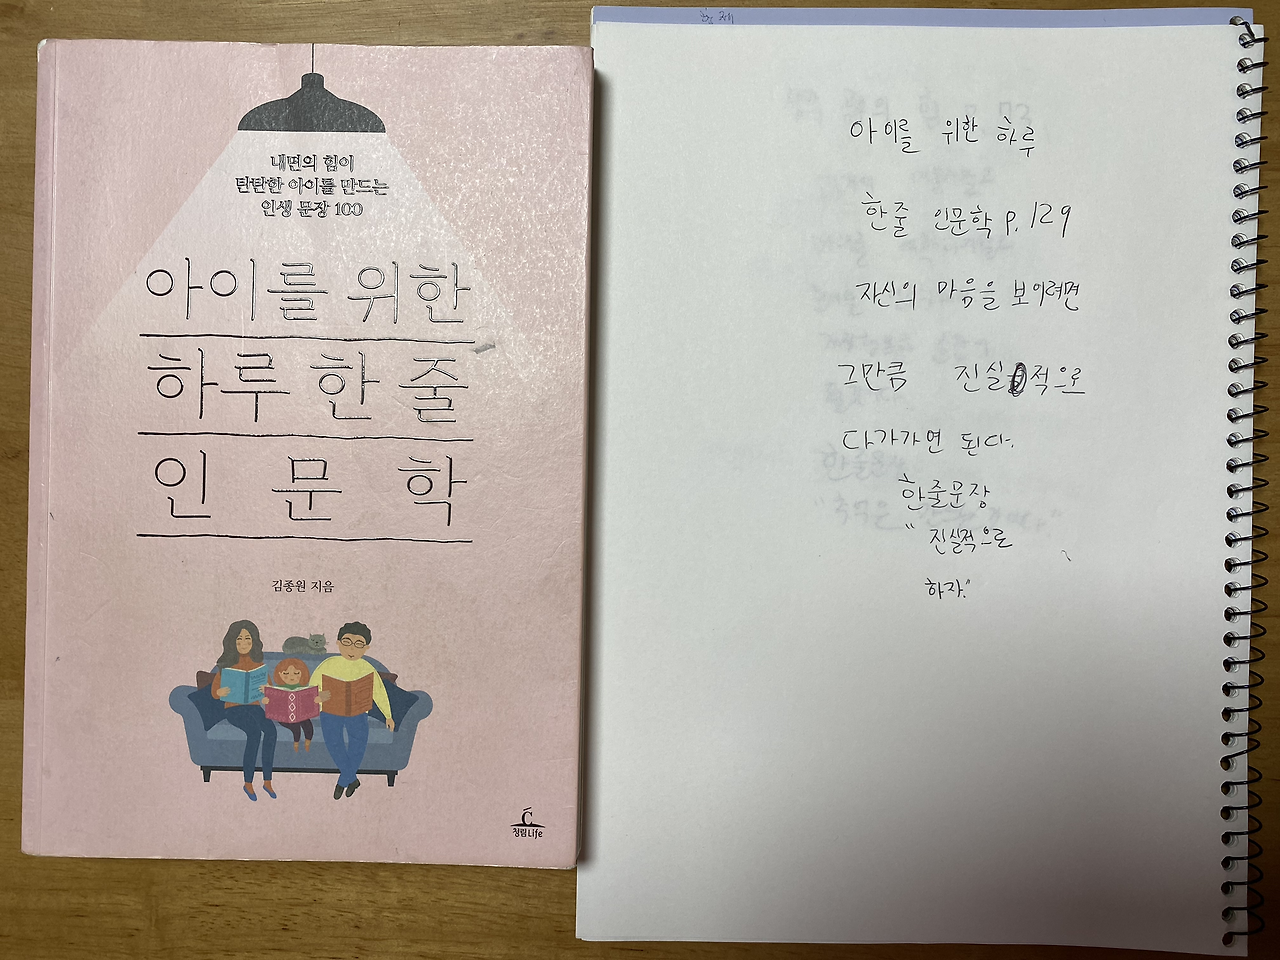 내면의 힘이
탄탄한 아이를 만드는
인생 문장 100
아이를 위한
하루 한 줄
인문학
김종원 지음
청림Life
아이를 위한 하루
한줄 인문학 p.129
자신의 마음을 보이려면
그만큼 진실적으로
다가가면 된다.
한줄문장
"진실적으로
하자."